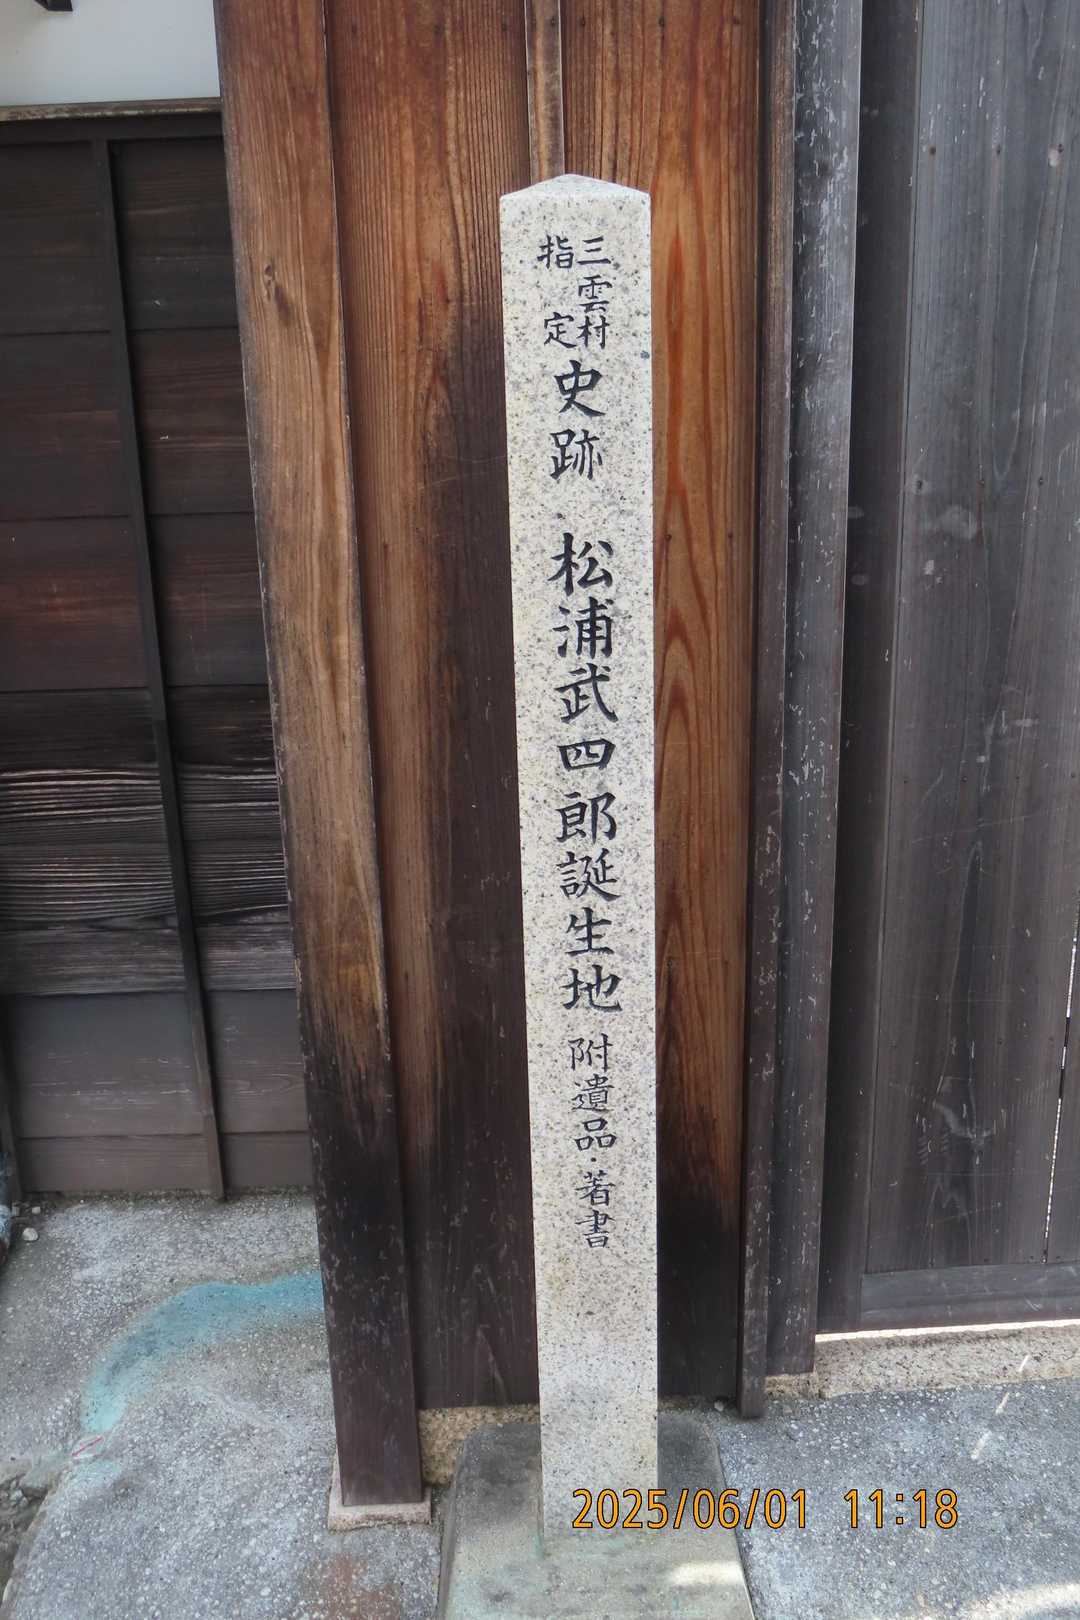 三雲村
指定
史跡 松浦武四郎誕生地 附遺品・著書
2025/06/01 11:18